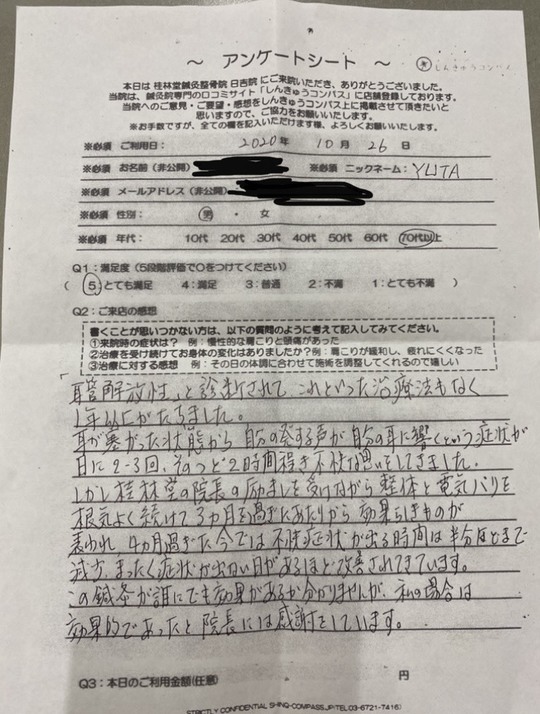 ～ アンケートシート ～
※しんきゅうコンパス
本日は 桂林堂鍼灸整骨院 日吉院 にご来院いただき、ありがとうございました。
当院は、鍼灸院専門の口コミサイト「しんきゅうコンパス」に店舗登録しております。
当院へのご意見・ご要望・感想をしんきゅうコンパス上に掲載させて頂きたいと
思いますので、ご協力をお願いいたします。
※お手数ですが、全ての欄を記入いただけます様、よろしくお願いいたします。
※必須 ご利用日： 2020年 10月 26日
※必須 お名前（非公開） ※必須 ニックネーム：YUTA
※必須 メールアドレス（非公開）
※必須 性別： 男 ・ 女
※必須 年代： 10代 20代 30代 40代 50代 60代 70代以上
Q1：満足度（5段階評価で○をつけてください）
（ 5：とても満足 4：満足 3：普通 2：不満 1：とても不満 ）
Q2：ご来店の感想
書くことが思いつかない方は、以下の質問のように考えて記入してみてください。
①来院時の症状は？ 例：慢性的な肩こりと頭痛があった
②治療を受け続けてお身体の変化はありましたか？例：肩こりが緩和し、疲れにくくなった
③治療に対する感想 例：その日の体調に合わせて施術を調整してくれるので嬉しい
「耳管解放性」と診断されて これといった治療法もなく
1年以上がたちました。
耳が塞がった状態から 自分の発する声が 自分の耳に響くという症状が
日に2-3回、そのつど2時間程き不快な思いをしてきました。
しかし桂林堂の院長の励ましを受けながら 整体と電気バリを
根気よく続けて 3カ月を過ぎたあたりから 効果らしきものが
表われ、4カ月過ぎた今では 不快症状が出る時間は 半分ほどまで
減少、まったく症状が出ない日があるほど改善されてきています。
この鍼灸が誰にでも効果があるか分かりませんが、私の場合は
効果的であったと 院長には感謝をしています。
Q3：本日のご利用金額(任意) 円
STRICTLY CONFIDENTIAL SHINQ-COMPASS.JP(TEL03-6721-7416)